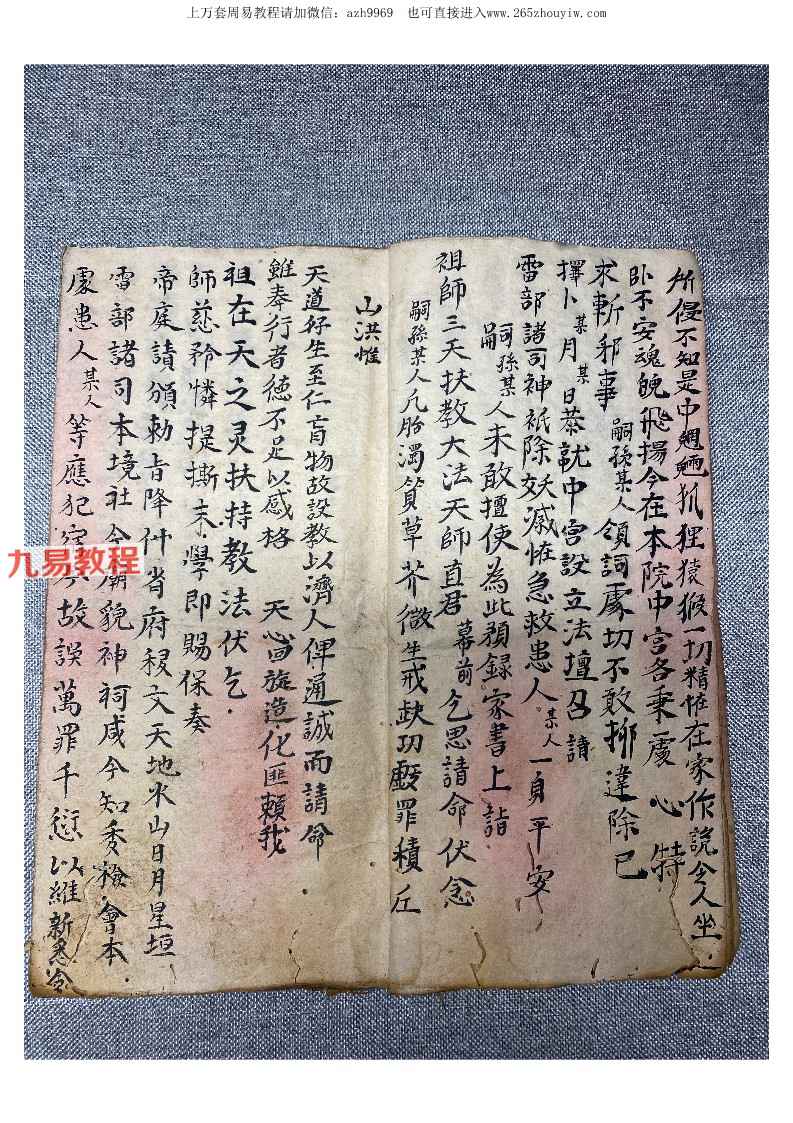 上万套周易教程请加微信：azh9969 也可直接进入www.265zhouyiw.com
所侵不知是中魍魎狐狸猿猴一切精恠在家作說令人坐
卧不安魂魄飛揚今在本院中宫各秉虔心特
求斬邪事 嗣孫某人領詞虔切不敢抑違除已
擇卜某月某日恭就中宫設立法壇召請
雷部諸司神祇除妖滅恠急救患人某人一員平安
嗣孫某人未敢擅使為此預録家書上詣
祖師三天扶教大法天師直君幕前乞思請命伏念
嗣孫某人凡胎濁質草芥微生戒缺功虧罪積丘
山洪惟
天道好生至仁育物故設教以濟人俾通誠而請命
雖奉行者徳不足以感格 天心回旋造化匪賴我
祖在天之灵扶持教法伏乞
師慈矜憐提撕末學即賜保奏
帝庭請頒勅旨降付省府移文天地水山日月星垣
雷部諸司本境社令廟貌神祠咸令知委檢會本
虔患人某人等應犯故誤萬罪千愆以維新悉冷
九易教程